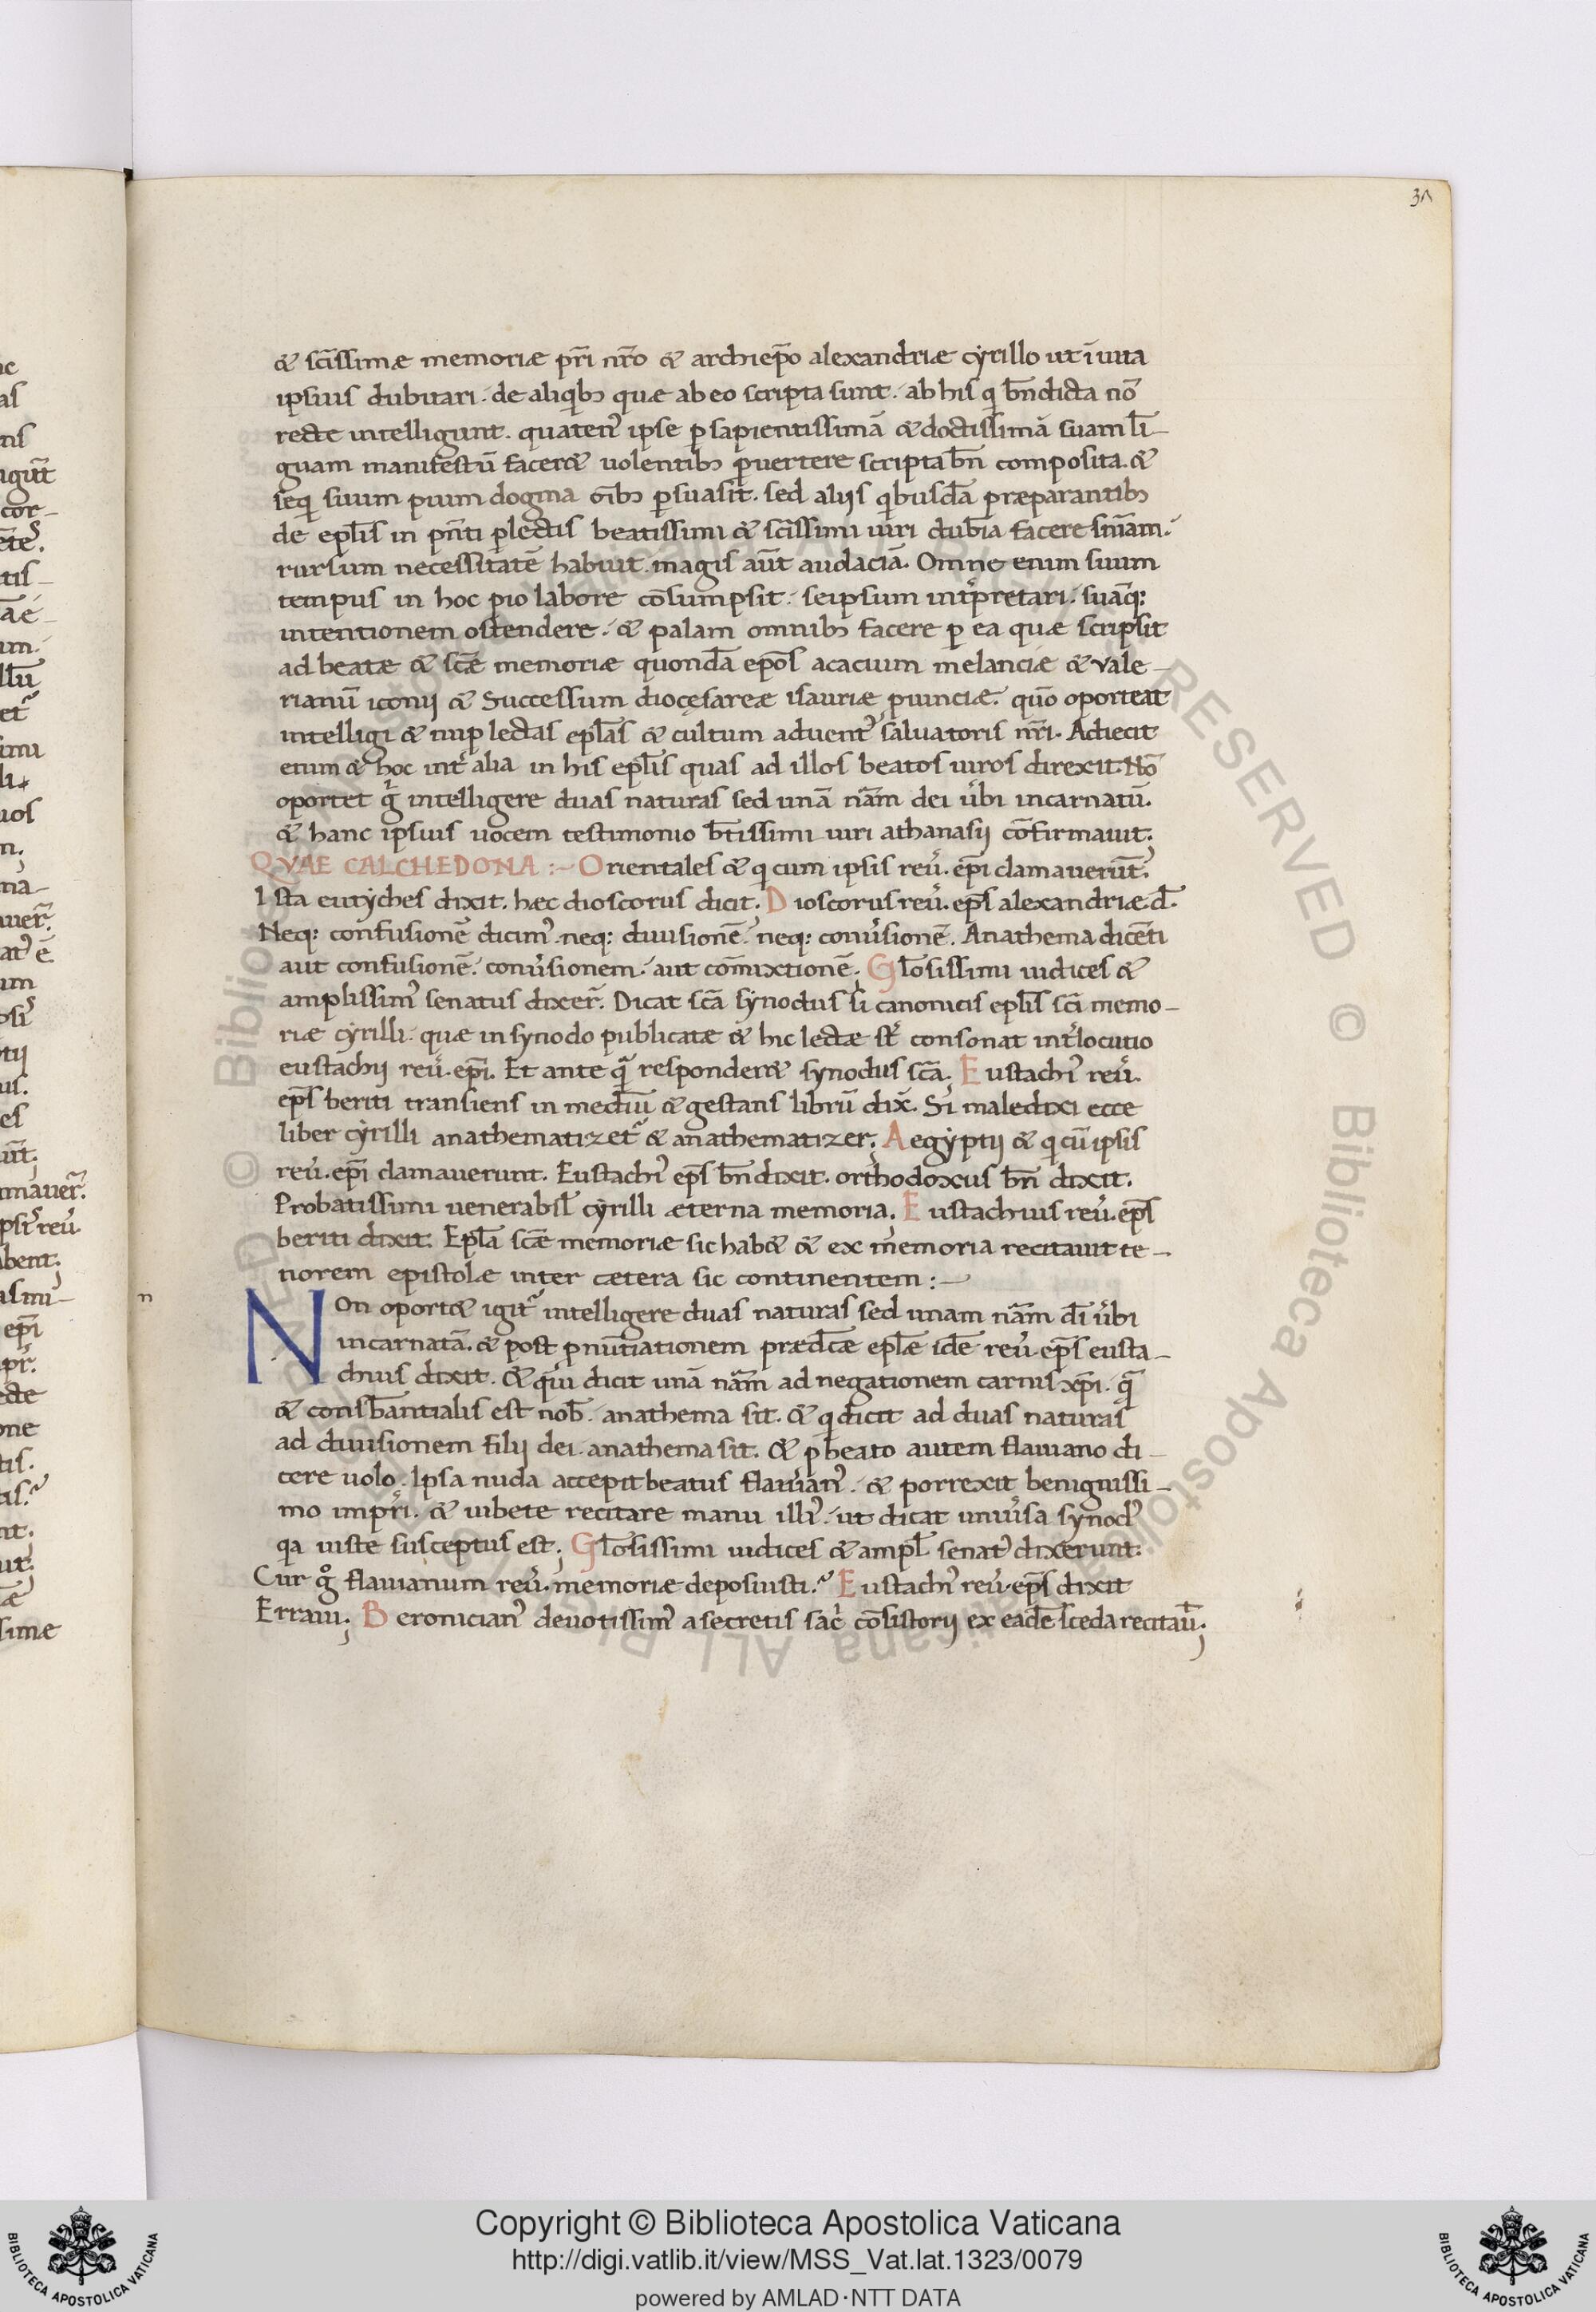 37
& scīssimæ memoriæ pr̄i nr̄o & archiep̄o alexandriæ cyrillo ut ī uita
ipsius dubitari. de aliqibꝫ quæ ab eo scripta sunt. ab his q bn̄ dicta nō
recte intelligunt. quaten⁹ ipse ꝑ sapientissimā & doctissimā suam li-
guam manifestū facer& uolentibꝫ ꝑuertere scripta bn̄ composita. &
seq suum pium dogma oībꝫ ꝑsuasit. sed alijs qibusdā præparantibꝫ
de epl̄is in pn̄ti ꝑlectis beatissimi & scīssimi uiri dubia facere sn̄iam.
rursum necessitatē habuit. magis aūt audaciā. Omne enim suum
tempus in hoc pio labore cōsumpsit. seipsum intp̄retari. suāq:
intentionem ostendere. & palam omnibꝫ facere ꝑ ea quæ scripsit
ad beatæ & scǣ memoriæ quondā ep̄os acacium melanciæ & vale-
rianū iconij & Successum diocęsareæ isauriæ ꝓuinciæ. quō oporteat
intelligi & nuꝑ lectas epl̄as & cultum aduent⁹ saluatoris nr̄i. Adiecit
enim & hoc int̄ alia in his epl̄is quas ad illos beatos uiros direxit. Nō
oportet g̊ intelligere duas naturas sed unā nām dei ūbi incarnatū.
& hanc ipsius uocem testimonio bt̄issimi uiri athanasij cōfirmauit;
QVAE CALCHEDONA :- Orientales & q cum ipsis reu̅. epī clamauerūt.
Ista eutyches dixit. hæc dioscorus dicit; Dioscorus reu̅. ep̄s alexandriæ d̄.
Neq: confusionē dicim⁹. neq: diuisionē. neq: conūsionē. Anathema dicēti
aut confusionē. conūsionem. aut cōmixtionē; Glōsissimi iudices &
amplissim⁹ senatus dixer̄. Dicat scā synodus si canonicis epl̄is scī memo-
riæ cyrilli. quæ in synodo publicatæ & hic lectæ st̄ consonat int̄locutio
eustachij reu̅. epī. Et ante q̄ responder& synodus scā; Eustachi⁹ reu̅.
ep̄s beriti transiens in mediū & gestans librū dix̄. Si maledixi ecce
liber cyrilli anathematizet᷑ & anathematizer; Aegyptij & q cū ipsis
reu̅. epī clamauerunt. Eustachi⁹ ep̄s bn̄ dixit. orthodoxus bn̄ dixit.
Probatissimi uenerabil̄ cyrilli æterna memoria; Eustachius reu̅. ep̄s
beriti dixit. Epl̄a scǣ memoriæ sic hab& & ex memoria recitauit te-
norem epistolæ inter cætera sic continentem :-
n
NOn oport& igit᷑ intelligere duas naturas sed unam nām dī ūbi
incarnatā. & post ꝓnūtiationem prædcǣ epl̄æ idē reu̅. ep̄s eusta-
chius dixit. & qui dicit unā nām ad negationem carnis xp̄i. q̄
& consbāntialis est nob̄. anathema sit. & q dicit ad duas naturas
ad diuisionem filij dei. anathema sit. & ꝓ beato autem flauiano di-
cere uolo. Ipsa nuda accepit beatus flauian⁹. & porrexit benignissi-
mo impr̄i. & iubete recitare manu illi⁹. ut dicat uniūsa synod⁹
qa iuste susceptus est; Glōsissimi iudices & ampl̄ senat⁹ dixerunt.
Cur g̊ flauianum reu̅. memoriæ deposiusti.᷑ Eustachi⁹ reu̅. ep̄s dixit
Erraui; Beronician⁹ deuotissim⁹ a secretis sac̄ cōsistorij ex eadē sceda recitau̅;
Copyright © Biblioteca Apostolica Vaticana
http://digi.vatlib.it/view/MSS_Vat.lat.1323/0079
powered by AMLAD·NTT DATA